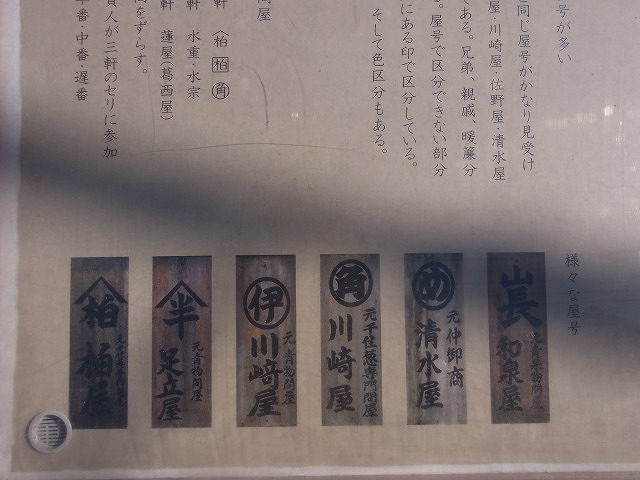 号が多い
と同じ屋号がかなり見受け
屋・川崎屋・佐野屋・清水屋
である。兄弟、親戚、暖簾分
。屋号で区分できない部分
にある印で区分している。
そして色区分もある。
問屋
軒 〈柏 柏 角
軒 水重・水宗
軒 蓮屋(葛西屋)
間をずらす。
買人が三軒のセリに参加
早番・中番・遅番
様々な屋号
山長 和泉屋
め 清水屋
元仲御商
角 川崎屋
元千住葱専門問屋
伊 川﨑屋
元青物問屋
半 足立屋
元青物問屋
柏 柏屋